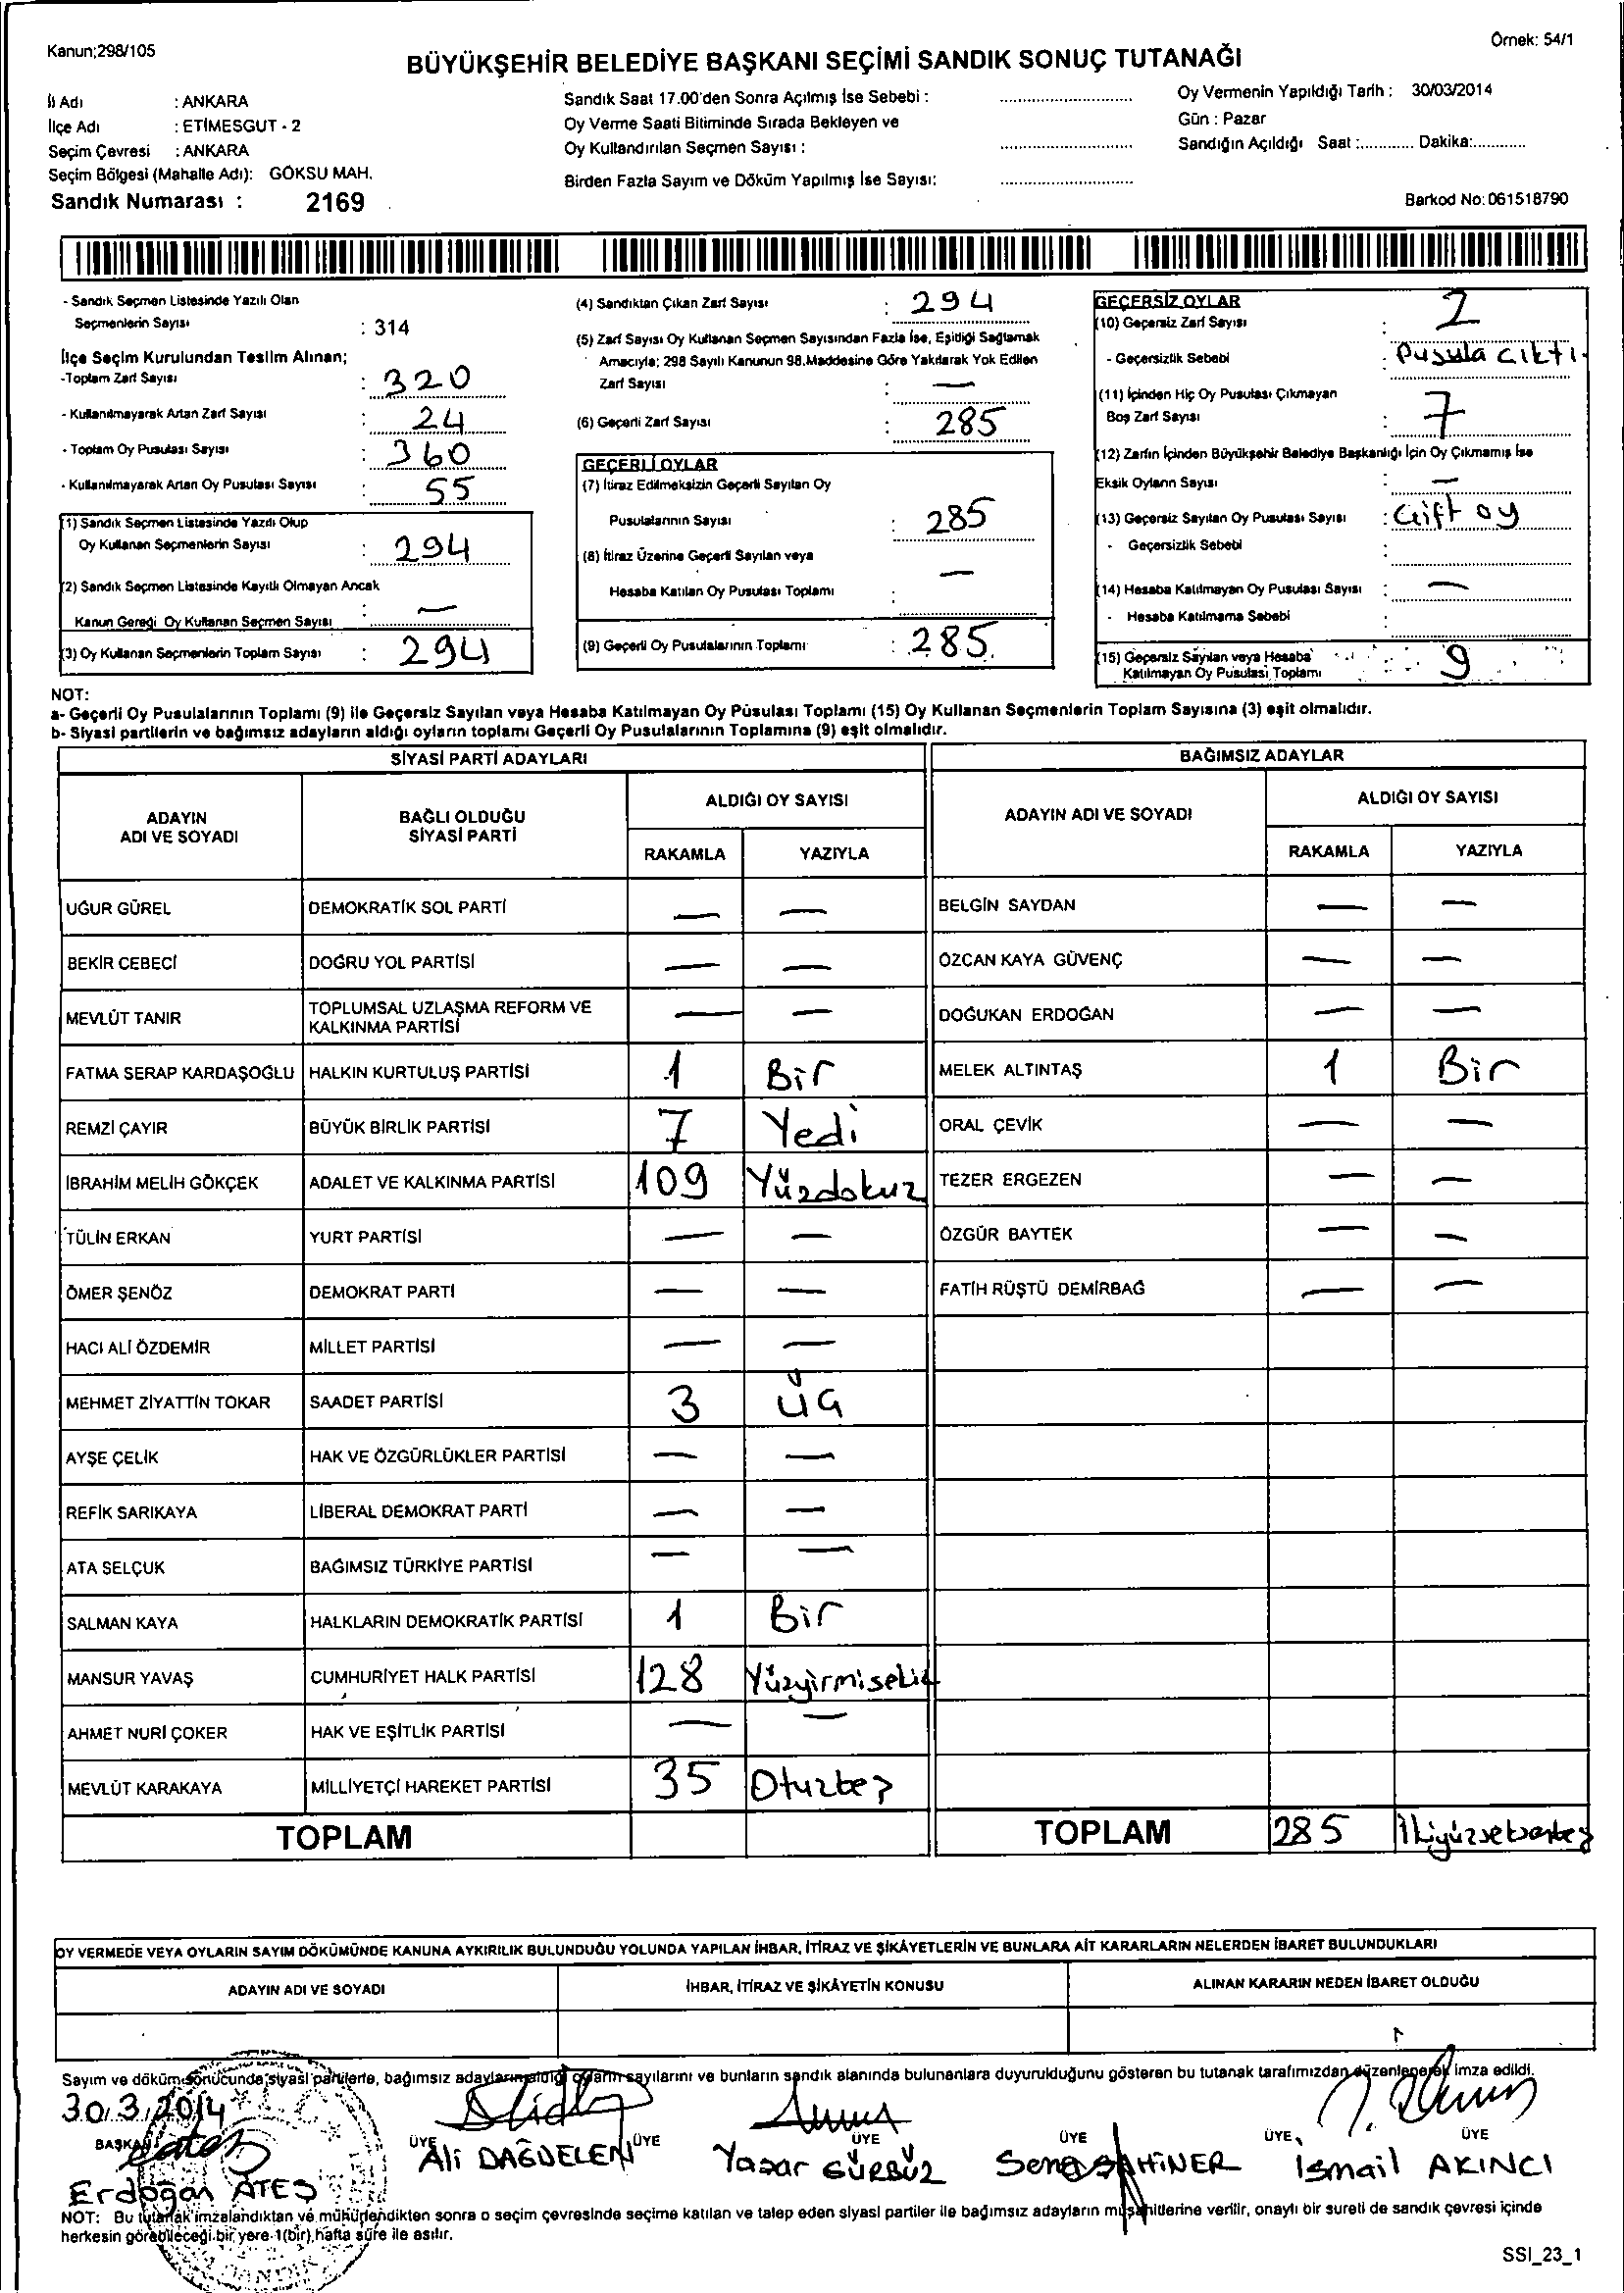 Kanun;298/105
Örnek: 54/1
BÜYÜKŞEHİR BELEDİYE BAŞKANI SEÇİMİ SANDIK SONUÇ TUTANAĞI
İli Adı : ANKARA
İlçe Adı : ETİMESGUT - 2
Seçim Çevresi : ANKARA
Seçim Bölgesi (Mahalle Adı): GÖKSU MAH.
Sandık Numarası : 2169
Sandık Saat 17.00'den Sonra Açılmış İse Sebebi :
Oy Verme Saati Bitiminde Sırada Bekleyen ve
Oy Kullandırılan Seçmen Sayısı :
Birden Fazla Sayım ve Döküm Yapılmış İse Sayısı:
Oy Vermenin Yapıldığı Tarih : 30/03/2014
Gün : Pazar
Sandığın Açıldığı Saat :............ Dakika:...........
Barkod No:061518790
- Sandık Seçmen Listesinde Yazılı Olan
Seçmenlerin Sayısı : 314
İlçe Seçim Kurulundan Teslim Alınan;
-Toplam Zarf Sayısı : 320
- Kullanılmayarak Artan Zarf Sayısı : 24
- Toplam Oy Pusulası Sayısı : 360
- Kullanılmayarak Artan Oy Pusulası Sayısı : 55
(1) Sandık Seçmen Listesinde Yazılı Olup
Oy Kullanan Seçmenlerin Sayısı : 294
(2) Sandık Seçmen Listesinde Kayıtlı Olmayan Ancak
Kanun Gereği Oy Kullanan Seçmen Sayısı : —
(3) Oy Kullanan Seçmenlerin Toplam Sayısı : 294
(4) Sandıktan Çıkan Zarf Sayısı : 294
(5) Zarf Sayısı Oy Kullanan Seçmen Sayısından Fazla İse, Eşitliği Sağlamak
Amacıyla; 298 Sayılı Kanunun 98.Maddesine Göre Yakılarak Yok Edilen
Zarf Sayısı : —
(6) Geçerli Zarf Sayısı : 285
GEÇERLİ OYLAR
(7) İtiraz Edilmeksizin Geçerli Sayılan Oy
Pusulalarının Sayısı : 285
(8) İtiraz Üzerine Geçerli Sayılan veya
Hesaba Katılan Oy Pusulası Toplamı : —
(9) Geçerli Oy Pusulalarının Toplamı : 285
GEÇERSİZ OYLAR
(10) Geçersiz Zarf Sayısı : 2
- Geçersizlik Sebebi : Pusula cıktı.
(11) İçinden Hiç Oy Pusulası Çıkmayan
Boş Zarf Sayısı : 7
(12) Zarfın İçinden Büyükşehir Belediye Başkanlığı İçin Oy Çıkmamış İse
Eksik Oyların Sayısı : —
(13) Geçersiz Sayılan Oy Pusulası Sayısı : Çift oy
- Geçersizlik Sebebi :
(14) Hesaba Katılmayan Oy Pusulası Sayısı : —
- Hesaba Katılmama Sebebi :
(15) Geçersiz Sayılan veya Hesaba
Katılmayan Oy Pusulası Toplamı : 9
NOT:
a- Geçerli Oy Pusulalarının Toplamı (9) ile Geçersiz Sayılan veya Hesaba Katılmayan Oy Pusulası Toplamı (15) Oy Kullanan Seçmenlerin Toplam Sayısına (3) eşit olmalıdır.
b- Siyasi partilerin ve bağımsız adayların aldığı oyların toplamı Geçerli Oy Pusulalarının Toplamına (9) eşit olmalıdır.
SİYASİ PARTİ ADAYLARI
ADAYIN ADI VE SOYADI
BAĞLI OLDUĞU SİYASİ PARTİ
ALDIĞI OY SAYISI
RAKAMLA YAZIYLA
UĞUR GÜREL DEMOKRATİK SOL PARTİ — —
BEKİR CEBECİ DOĞRU YOL PARTİSİ — —
MEVLÜT TANIR TOPLUMSAL UZLAŞMA REFORM VE KALKINMA PARTİSİ — —
FATMA SERAP KARDAŞOĞLU HALKIN KURTULUŞ PARTİSİ 1 Bir
REMZİ ÇAYIR BÜYÜK BİRLİK PARTİSİ 7 Yedi
İBRAHİM MELİH GÖKÇEK ADALET VE KALKINMA PARTİSİ 109 Yüzdokuz
TÜLİN ERKAN YURT PARTİSİ — —
ÖMER ŞENÖZ DEMOKRAT PARTİ — —
HACI ALİ ÖZDEMİR MİLLET PARTİSİ — —
MEHMET ZİYATTİN TOKAR SAADET PARTİSİ 3 Üç
AYŞE ÇELİK HAK VE ÖZGÜRLÜKLER PARTİSİ — —
REFİK SARIKAYA LİBERAL DEMOKRAT PARTİ — —
ATA SELÇUK BAĞIMSIZ TÜRKİYE PARTİSİ — —
SALMAN KAYA HALKLARIN DEMOKRATİK PARTİSİ 1 Bir
MANSUR YAVAŞ CUMHURİYET HALK PARTİSİ 128 Yüzyirmisekiz
AHMET NURİ ÇOKER HAK VE EŞİTLİK PARTİSİ — —
MEVLÜT KARAKAYA MİLLİYETÇİ HAREKET PARTİSİ 35 Otuzbeş
TOPLAM
BAĞIMSIZ ADAYLAR
ADAYIN ADI VE SOYADI
ALDIĞI OY SAYISI
RAKAMLA YAZIYLA
BELGİN SAYDAN — —
ÖZCAN KAYA GÜVENÇ — —
DOĞUKAN ERDOĞAN — —
MELEK ALTINTAŞ 1 Bir
ORAL ÇEVİK — —
TEZER ERGEZEN — —
ÖZGÜR BAYTEK — —
FATİH RÜŞTÜ DEMİRBAĞ — —
TOPLAM 285 İkiyüzseksenbeş
OY VERMEDE VEYA OYLARIN SAYIM DÖKÜMÜNDE KANUNA AYKIRILIK BULUNDUĞU YOLUNDA YAPILAN İHBAR, İTİRAZ VE ŞİKÂYETLERİN VE BUNLARA AİT KARARLARIN NELERDEN İBARET BULUNDUKLARI
ADAYIN ADI VE SOYADI
İHBAR, İTİRAZ VE ŞİKÂYETİN KONUSU
ALINAN KARARIN NEDEN İBARET OLDUĞU
Sayım ve döküm sonucunda siyasi partilerle, bağımsız adayların aldığı oyların sayılarını ve bunların sandık alanında bulunanlara duyurulduğunu gösteren bu tutanak tarafımızdan düzenlenerek imza edildi.
30.3.2014
BAŞKAN ÜYE ÜYE ÜYE ÜYE ÜYE ÜYE
Erdoğan ATEŞ Ali DAĞDELEN Yaşar GÜRBÜZ ŞAHİNER İsmail AKINCI
NOT: Bu tutanak imzalandıktan ve mühürlendikten sonra o seçim çevresinde seçime katılan ve talep eden siyasi partiler ile bağımsız adayların müşahitlerine verilir, onaylı bir sureti de sandık çevresi içinde
herkesin görebileceği bir yere 1(bir) hafta süre ile asılır.
SSI_23_1